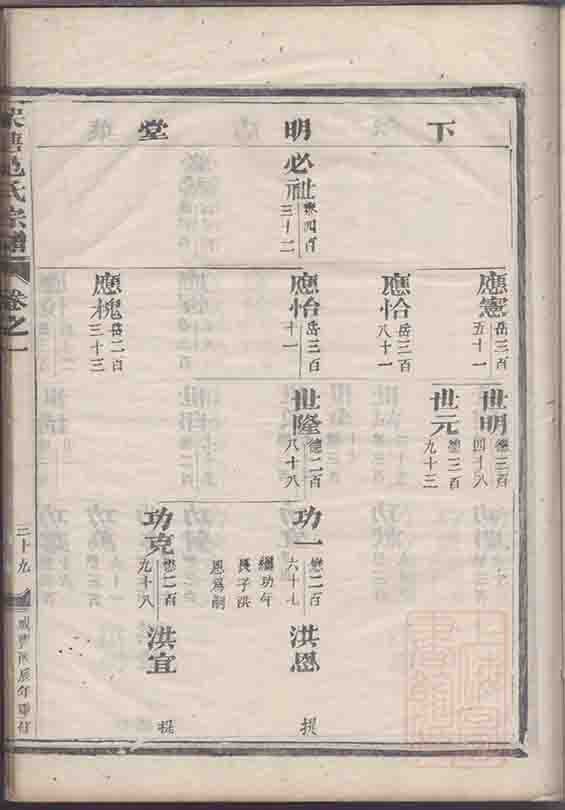 下明堂
必祉
三十二
應憲
岳三百
五十一
應恰
岳三百
八十一
應怡
岳三百
十一
應槐
岳二百
三十三
世明
德三百
四十八
世元
德三百
九十三
世隆
德二百
八十八
功一
懋二百
六十七
繼功年
長子洪
恩爲嗣
功克
懋二百
九十八
洪恩
洪宜
氏宗譜
卷之一
三十九
咸豐丙辰年重修